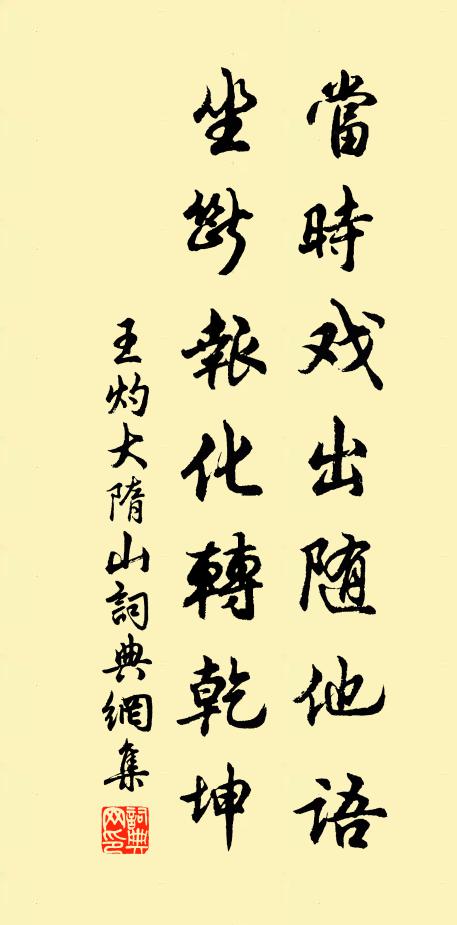 當時戏出随他語
坐斷報化轉乾坤
王灼大隋山詞典網集
詞典网印